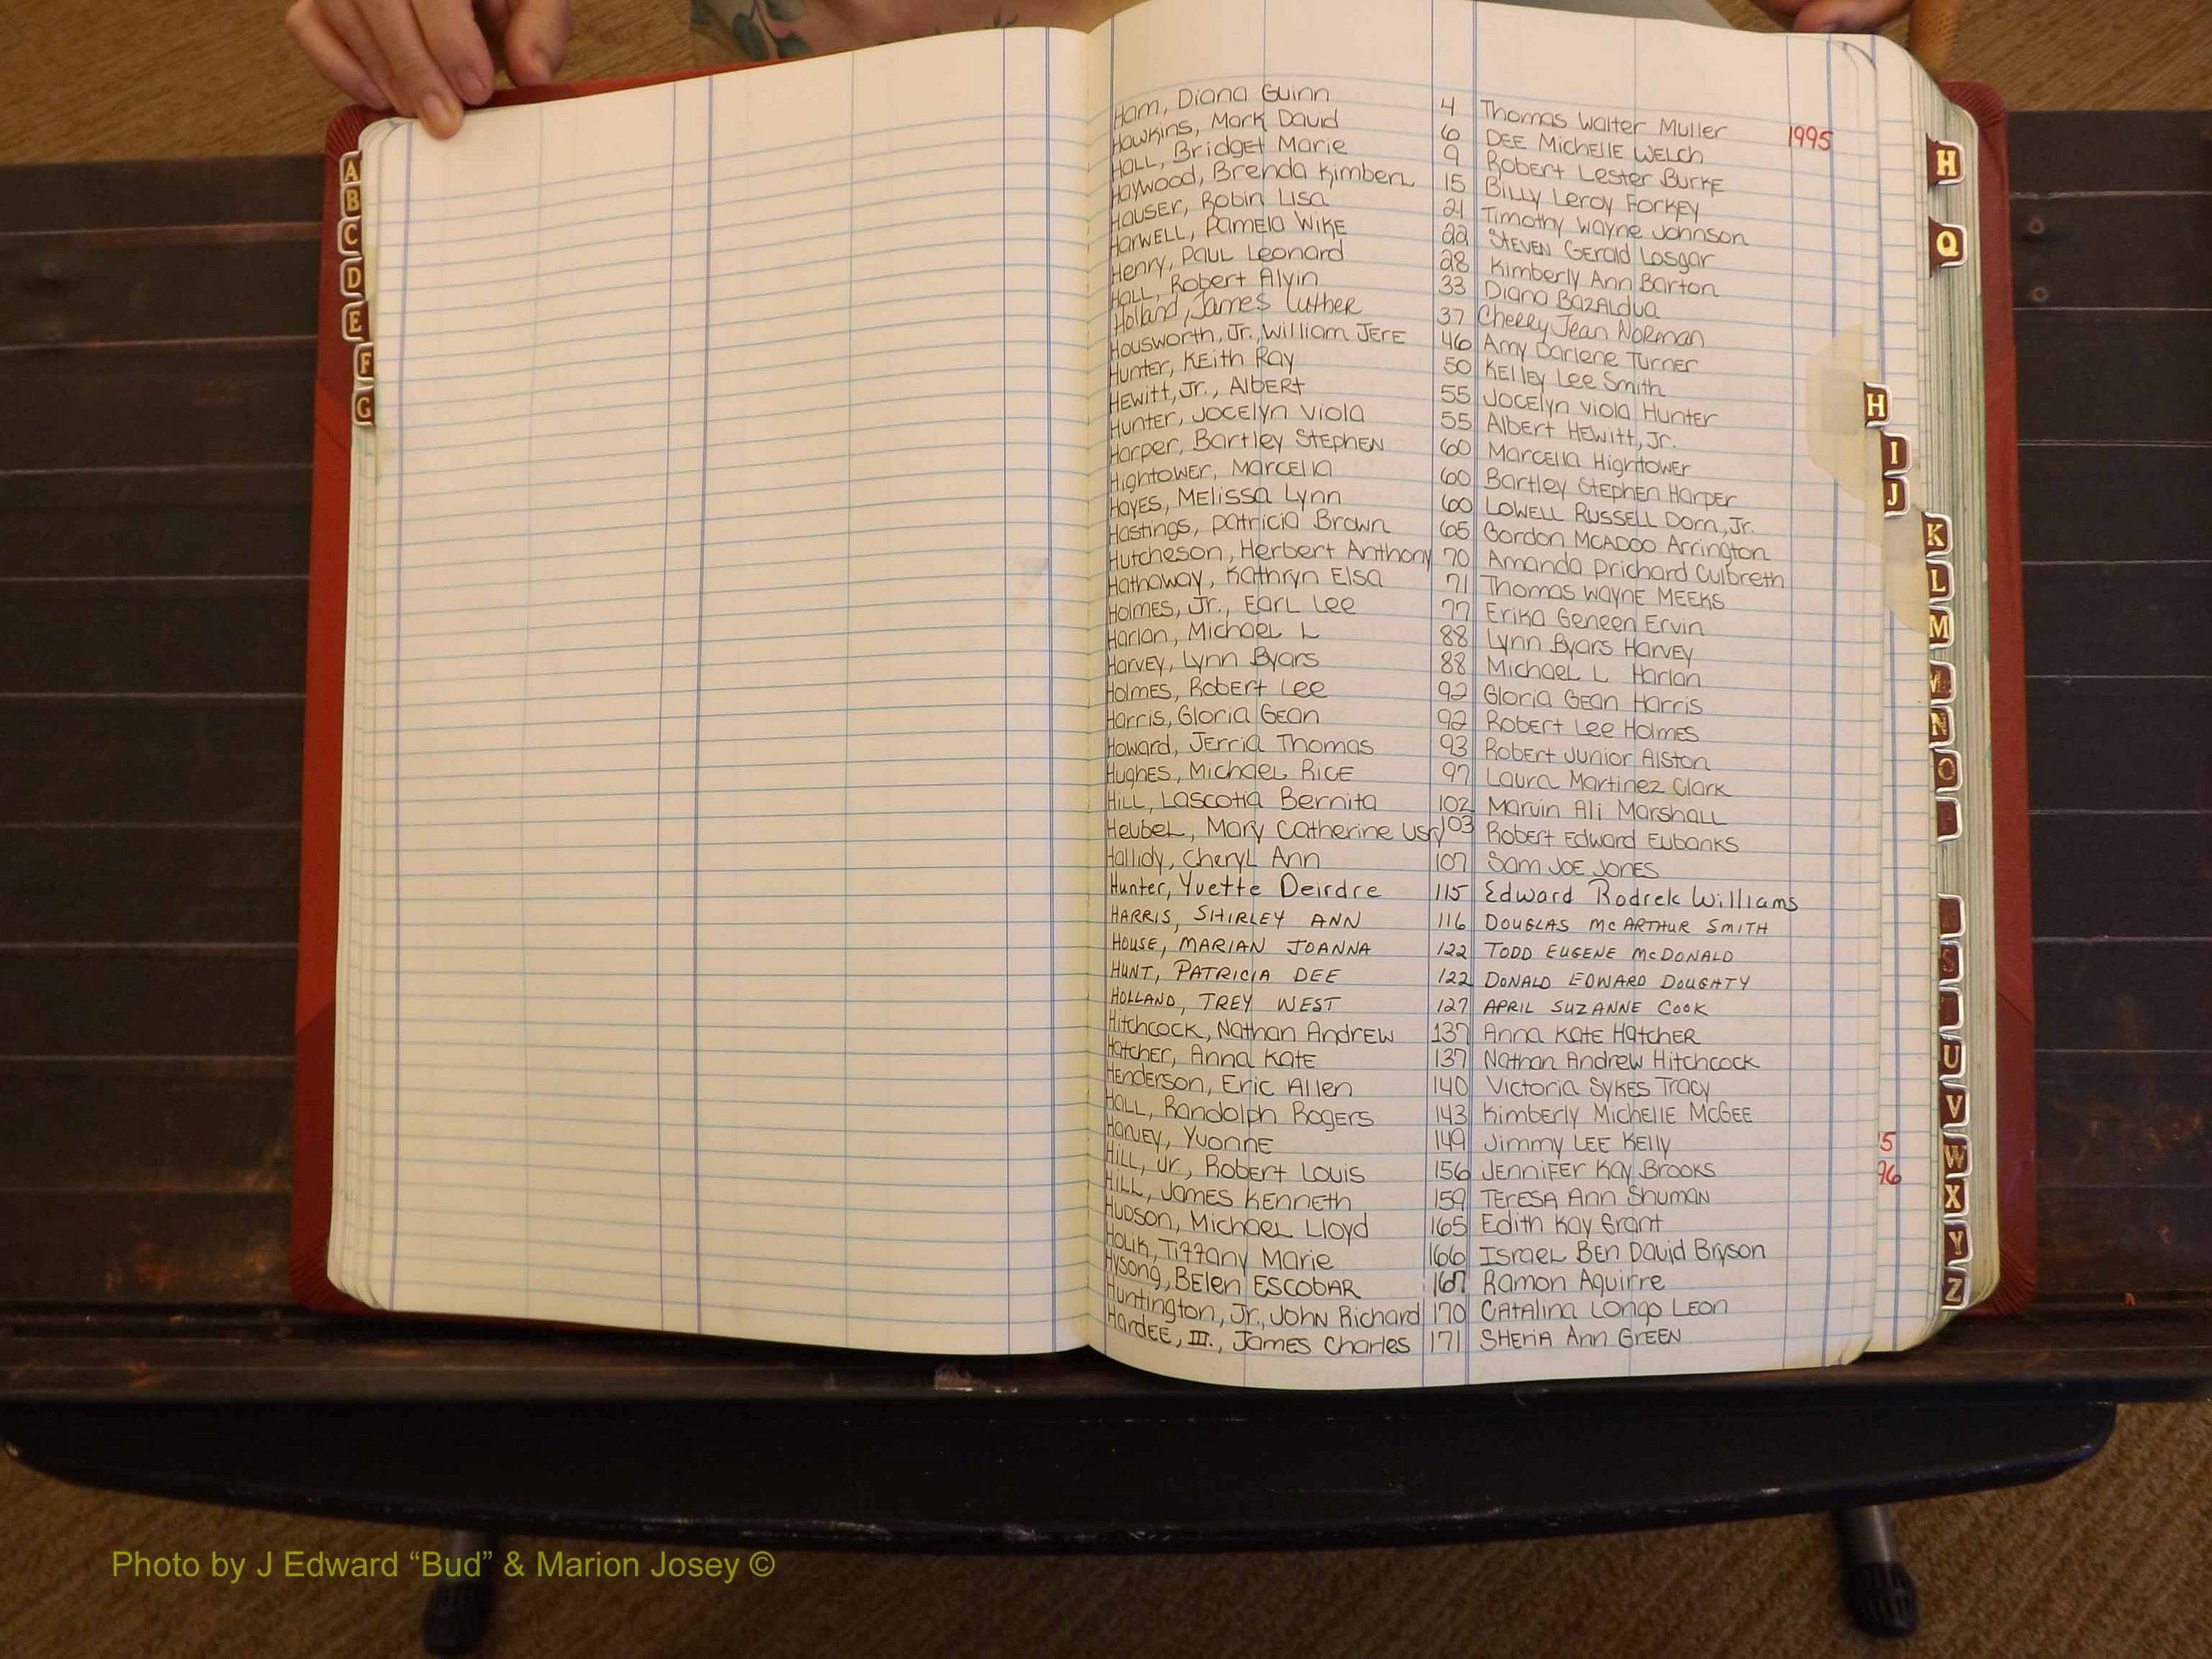 A
B
C
D
E
F
G
Ham, Diana Guinn 4 Thomas Walter Muller 1995
Hawkins, Mark David 6 Dee Michelle Welch
Hall, Bridget Marie 9 Robert Lester Burke
Haywood, Brenda Kimberl 15 Billy Leroy Forkey
Hauser, Robin Lisa 21 Timothy Wayne Johnson
Harwell, Pamela Wike 22 Steven Gerald Losgar
Henry, Paul Leonard 28 Kimberly Ann Barton
Hall, Robert Alvin 33 Diana Bazaldua
Holland, James Luther 37 Cherry Jean Norman
Housworth, Jr., William Jere 46 Amy Darlene Turner
Hunter, Keith Ray 50 Kelley Lee Smith
Hewitt, Jr., Albert 55 Jocelyn Viola Hunter
Hunter, Jocelyn Viola 55 Albert Hewitt, Jr.
Harper, Bartley Stephen 60 Marcella Hightower
Hightower, Marcella 60 Bartley Stephen Harper
Hayes, Melissa Lynn 60 Lowell Russell Dorn, Jr.
Hastings, Patricia Brown 65 Gordon McAdoo Arrington
Hutcheson, Herbert Anthony 70 Amanda Prichard Culbreth
Hathaway, Kathryn Elsa 71 Thomas Wayne Meeks
Holmes, Jr., Earl Lee 77 Erika Geneen Ervin
Harlan, Michael L 88 Lynn Byars Harvey
Harvey, Lynn Byars 88 Michael L Harlan
Holmes, Robert Lee 92 Gloria Gean Harris
Harris, Gloria Gean 92 Robert Lee Holmes
Howard, Jerria Thomas 93 Robert Junior Alston
Hughes, Michael Rice 97 Laura Martinez Clark
Hill, Lascotia Bernita 102 Marvin Ali Marshall
Heubel, Mary Catherine 103 Robert Edward Eubanks
Hallidy, Cheryl Ann 107 Sam Joe Jones
Hunter, Yvette Deirdre 115 Edward Rodrek Williams
HARRIS, SHIRLEY ANN 116 DOUGLAS McARTHUR SMITH
HOUSE, MARIAN JOANNA 122 TODD EUGENE McDONALD
HUNT, PATRICIA DEE 122 DONALD EDWARD DOUGHTY
HOLLAND, TREY WEST 127 APRIL SUZANNE COOK
Hitchcock, Nathan Andrew 137 Anna Kate Hatcher
Hatcher, Anna Kate 137 Nathan Andrew Hitchcock
Henderson, Eric Allen 140 Victoria Sykes Tracy
Hall, Randolph Rogers 143 Kimberly Michelle McGee
Harvey, Yvonne 149 Jimmy Lee Kelly
Hill, Jr., Robert Louis 156 Jennifer Kay Brooks
Hill, James Kenneth 159 Teresa Ann Shuman
Hudson, Michael Lloyd 165 Edith Kay Grant
Holik, Tiffany Marie 166 Israel Ben David Bryson
Hysong, Belen Escobar 167 Ramon Aguirre
Huntington, Jr., John Richard 170 Catalina Longo Leon
Hardee, III., James Charles 171 Sheria Ann Green
H
Q
H
I
J
K
L
M
N
O
S
U
V
W
X
Y
Z
5
96
Photo by J Edward “Bud” & Marion Josey ©